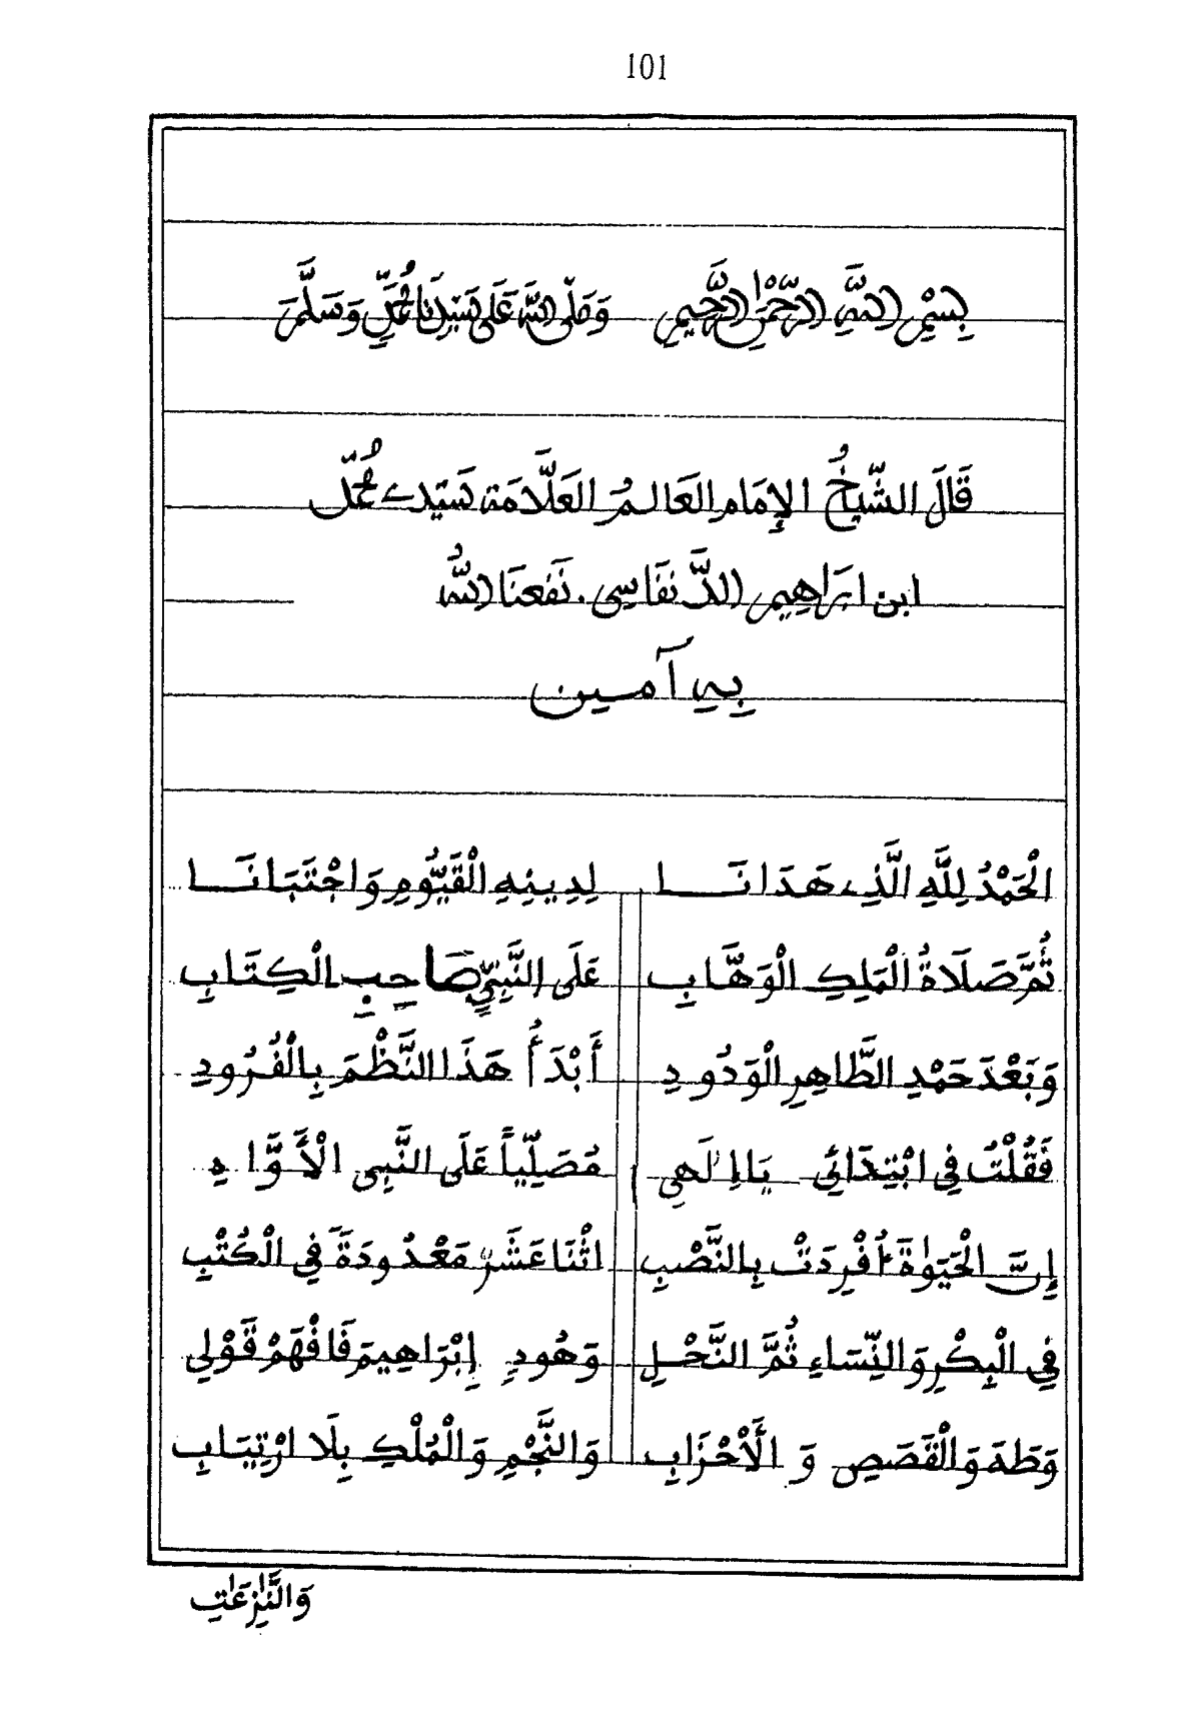 101
بِسْمِ اللَّهِ الرَّحْمَٰنِ الرَّحِيمِ وَصَلَّى اللَّهُ عَلَى سَيِّدِنَا مُحَمَّدٍ وَسَلَّمَ
قَالَ الشَّيْخُ الإِمَامِ العَالِمُ العَلَّامَة سَيِّدِي مُحَمَّد
ابن ابرَاهِيم الدَّنفَاسِي. نَفَعنَا اللَّهُ
بِهِ آمـين
الْحَمْدُ لِلَّهِ الَّذِي هَدَانَـــا لِدِينِهِ الْقَيُّومِ وَاجْتَبَانَـــا
ثُمَّ صَلَاةُ الْمَلِكِ الْوَهَّابِ عَلَى النَّبِيِّ صَاحِبِ الْكِتَابِ
وَبَعْدَ حَمْدِ الطَّاهِرِ الْوَدُودِ أَبْدَأُ هَذَا النَّظْمَ بِالْفُرُودِ
فَقُلْتُ فِي ابْتِدَائِي يَا إِلَٰهِي مُصَلِّياً عَلَى النَّبِي الْأَوَّاهِ
إِنَّ الْحَيَوٰةَ أُفْرِدَتْ بِالنَّصْبِ اثْنَا عَشَرْ مَعْدُودَةً فِي الْكُتْبِ
فِي الْبِكْرِ وَالنِّسَاءِ ثُمَّ النَّحْلِ وَهُودِ إِبْرَاهِيمَ فَافْهَمْ قَوْلِي
وَطَهَ وَالْقَصَصِ وَ الْأَحْزَابِ وَالنَّجْمِ وَالْمُلْكِ بِلَا ارْتِيَابِ
وَالنَّٰزِعَٰتِ